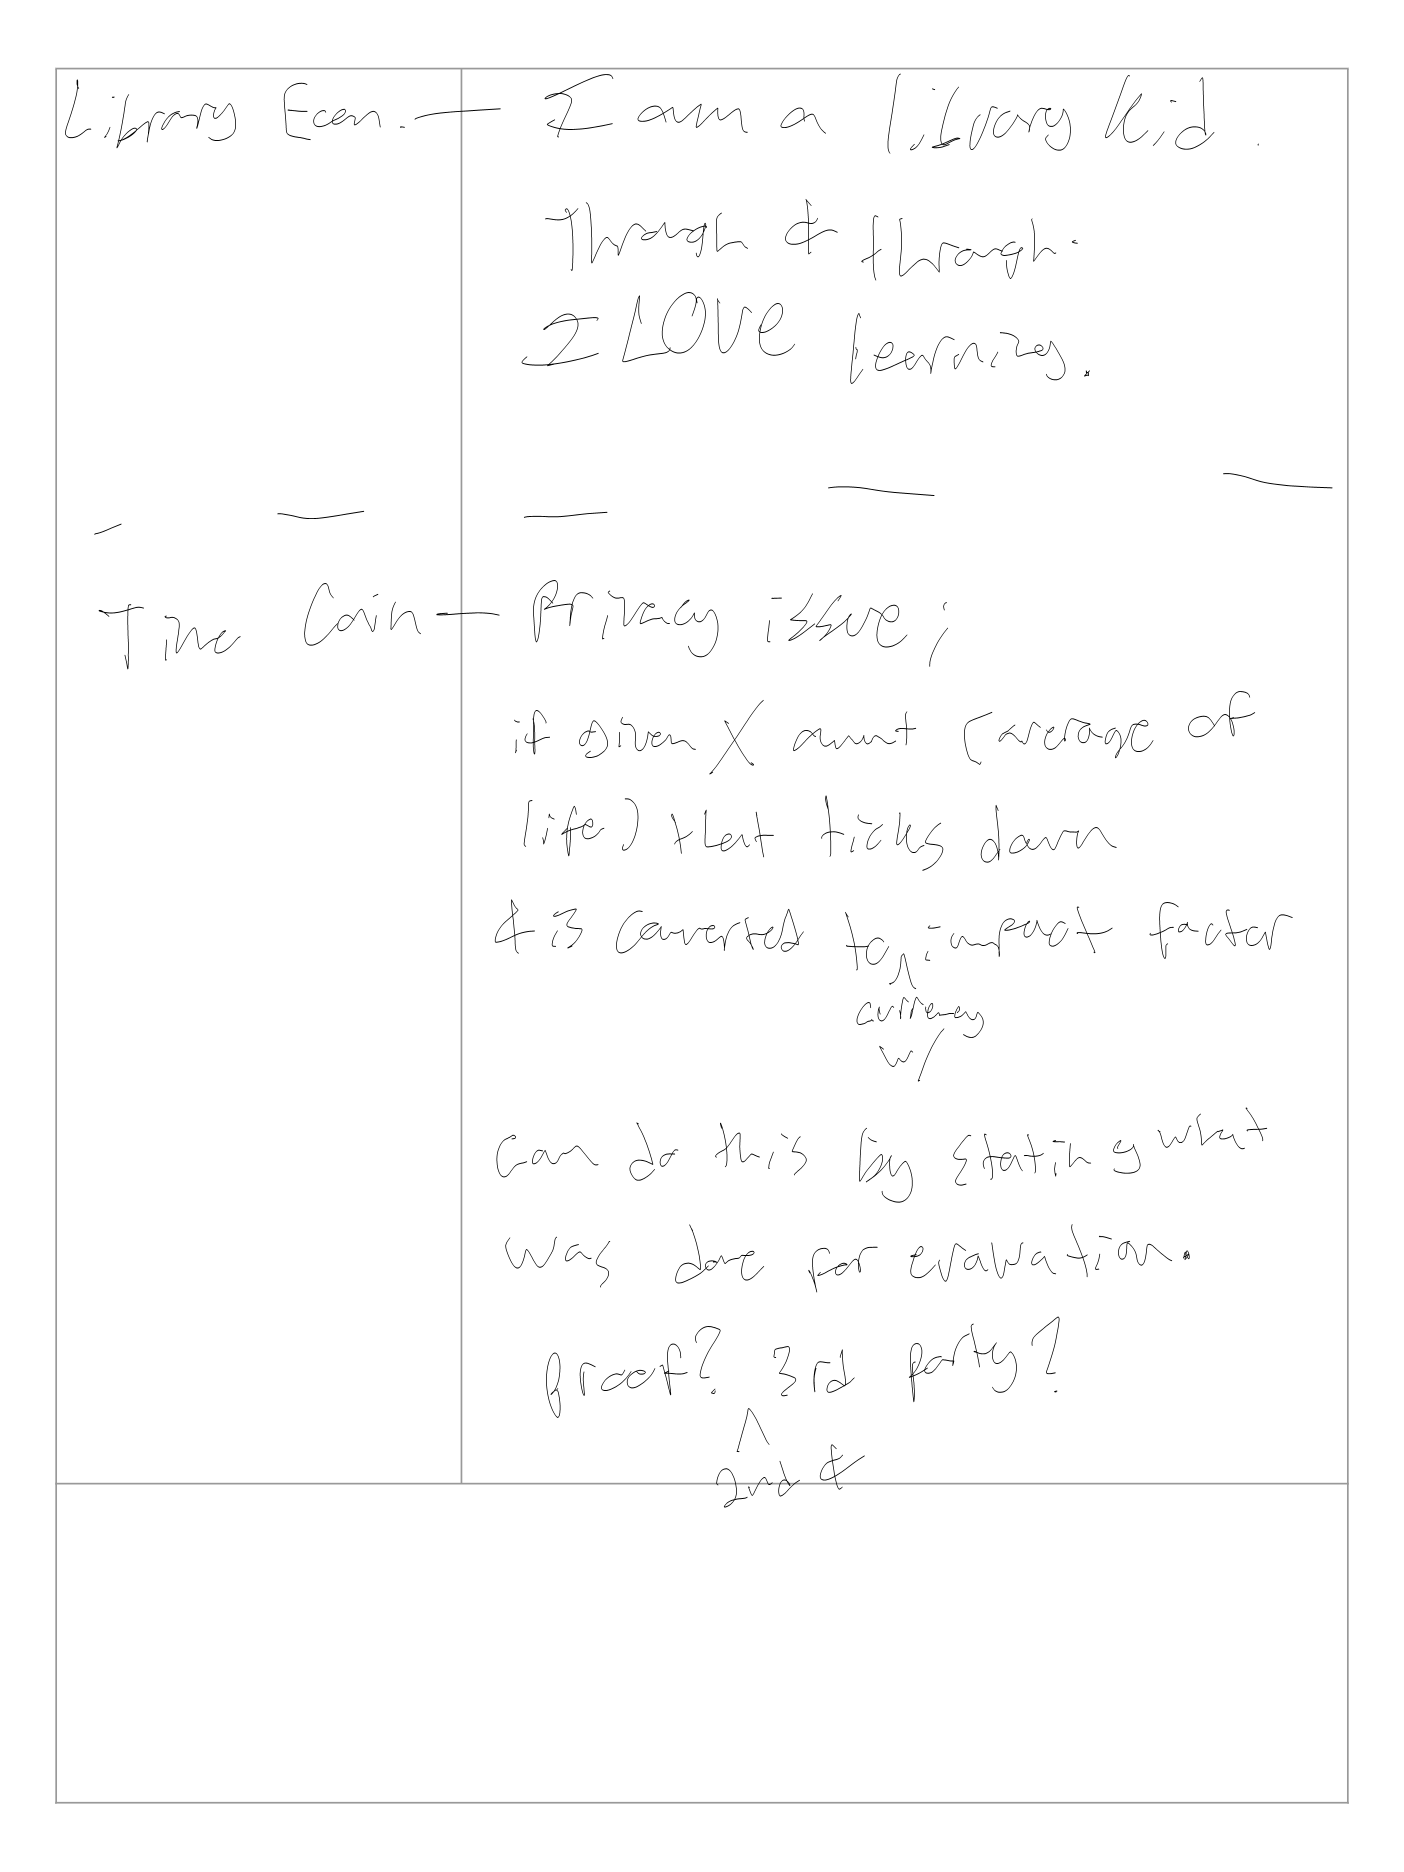 Library Econ. — I am a library kid.
Through & through.
I LOVE learning.
Time Coin — Privacy issue;
if given X amnt (average of
life) that ticks down
& is converted to ^ impact factor
currency
w/
can do this by stating what
was done for evaluation.
proof? 3rd party?
^
2nd &